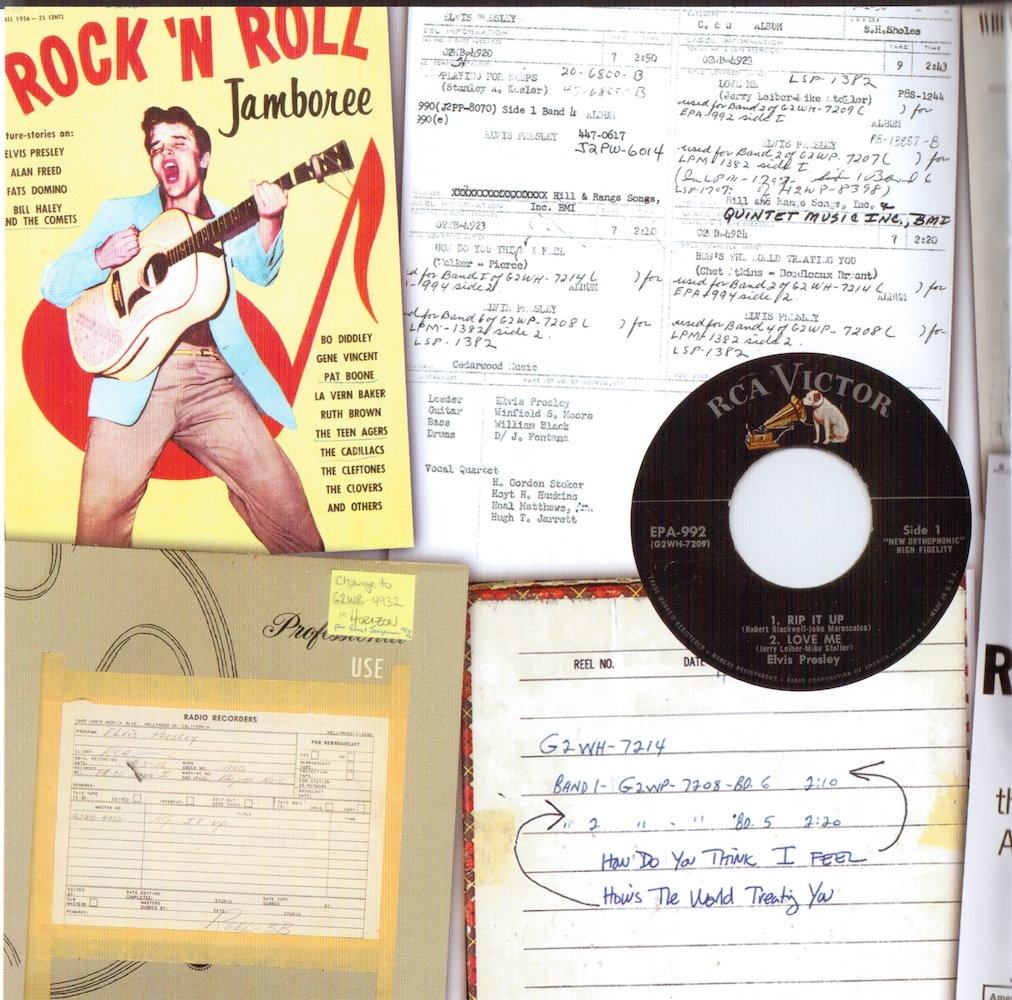 ALL 1956 — 25 CENTS
ROCK 'N ROLL
Jamboree
ture-stories on:
ELVIS PRESLEY
ALAN FREED
FATS DOMINO
BILL HALEY
ND THE COMETS
BO DIDDLEY
GENE VINCENT
PAT BOONE
LA VERN BAKER
RUTH BROWN
THE TEEN AGERS
THE CADILLACS
THE CLEFTONES
THE CLOVERS
AND OTHERS
ELVIS PRESLEY
G2WB-4920
7 2:50
PLAYING FOR KEEPS 20-6800-B
(Stanley A. Kesler) 47-6800-B
990(J2PP-8070) Side 1 Band 4 ALBUM
990(e)
ELVIS PRESLEY 447-0617
J2PW-6014
Hill & Range Songs,
Inc. BMI
G2WB-4923
7 2:10
HOW DO YOU THINK I FEEL
(Walker - Pierce)
ed for Band I of G2WH-7214 ( ) for
-994 side 2. ALBUM
ELVIS PRESLEY
d for Band 6 of G2WP-7208 ( ) for
LPM-1382 side 2.
LSP-1382
Cedarwood Music
C. & W ALBUM S.H.Sholes
LABEL INFORMATION TAKE TIME
G2WB-4921
9 2:43
LOVE ME LSP-1382
(Jerry Leiber-Mike Stoller) P8S-1244
used for Band 2 of G2WH-7209 ( ) for
EPA-992 side I ALBUM
ELVIS PRESLEY PB-13887-B
used for Band 2 of G2WP-7207 ( ) for
LPM 1382 side I
(In LPM-1707- side 1 Band 6
LSP-1707: of H2WP-8398)
Hill and Range Songs, Inc. &
QUINTET MUSIC INC., BMI
G2WB-4924
7 2:20
HOW'S THE WORLD TREATING YOU
(Chet Atkins - Boudleaux Bryant)
used for Band 2 of G2WH-7214 ( ) for
EPA-994 side 2. ALBUM
ELVIS PRESLEY
used for Band 4 of G2WP-7208 ( ) for
LPM-1382 side 2.
LSP-1382
Leader Elvis Presley
Guitar Winfield S. Moore
Bass William Black
Drums D/ J. Fontana
Vocal Quartet
H. Gordon Stoker
Hoyt H. Hawkins
Neal Matthews, Jr.
Hugh T. Jarrett
RCA VICTOR
EPA-992
(G2WH-7209)
Side 1
"NEW ORTHOPHONIC"
HIGH FIDELITY
1. RIP IT UP
(Robert Blackwell-John Marascalco)
2. LOVE ME
(Jerry Leiber-Mike Stoller)
Elvis Presley
Change to
G2WB-4932
in HORIZON
Professional
USE
RADIO RECORDERS
7000 SANTA MONICA BLVD. HOLLYWOOD 38, CALIFORNIA
HOLLYWOOD 3-3282
PROGRAM: Elvis Presley
FOR REBROADCAST
CLIENT: RCA
YES NO
REMARKS:
MASTER NO. TITLE TIME
Rip It Up
REEL-3B
REEL NO. DATE
G2WH-7214
BAND 1- G2WP-7208-BD. 6 2:10
" 2 " - " BD. 5 2:20
HOW DO YOU THINK I FEEL
How's The World Treating You
R
th
A